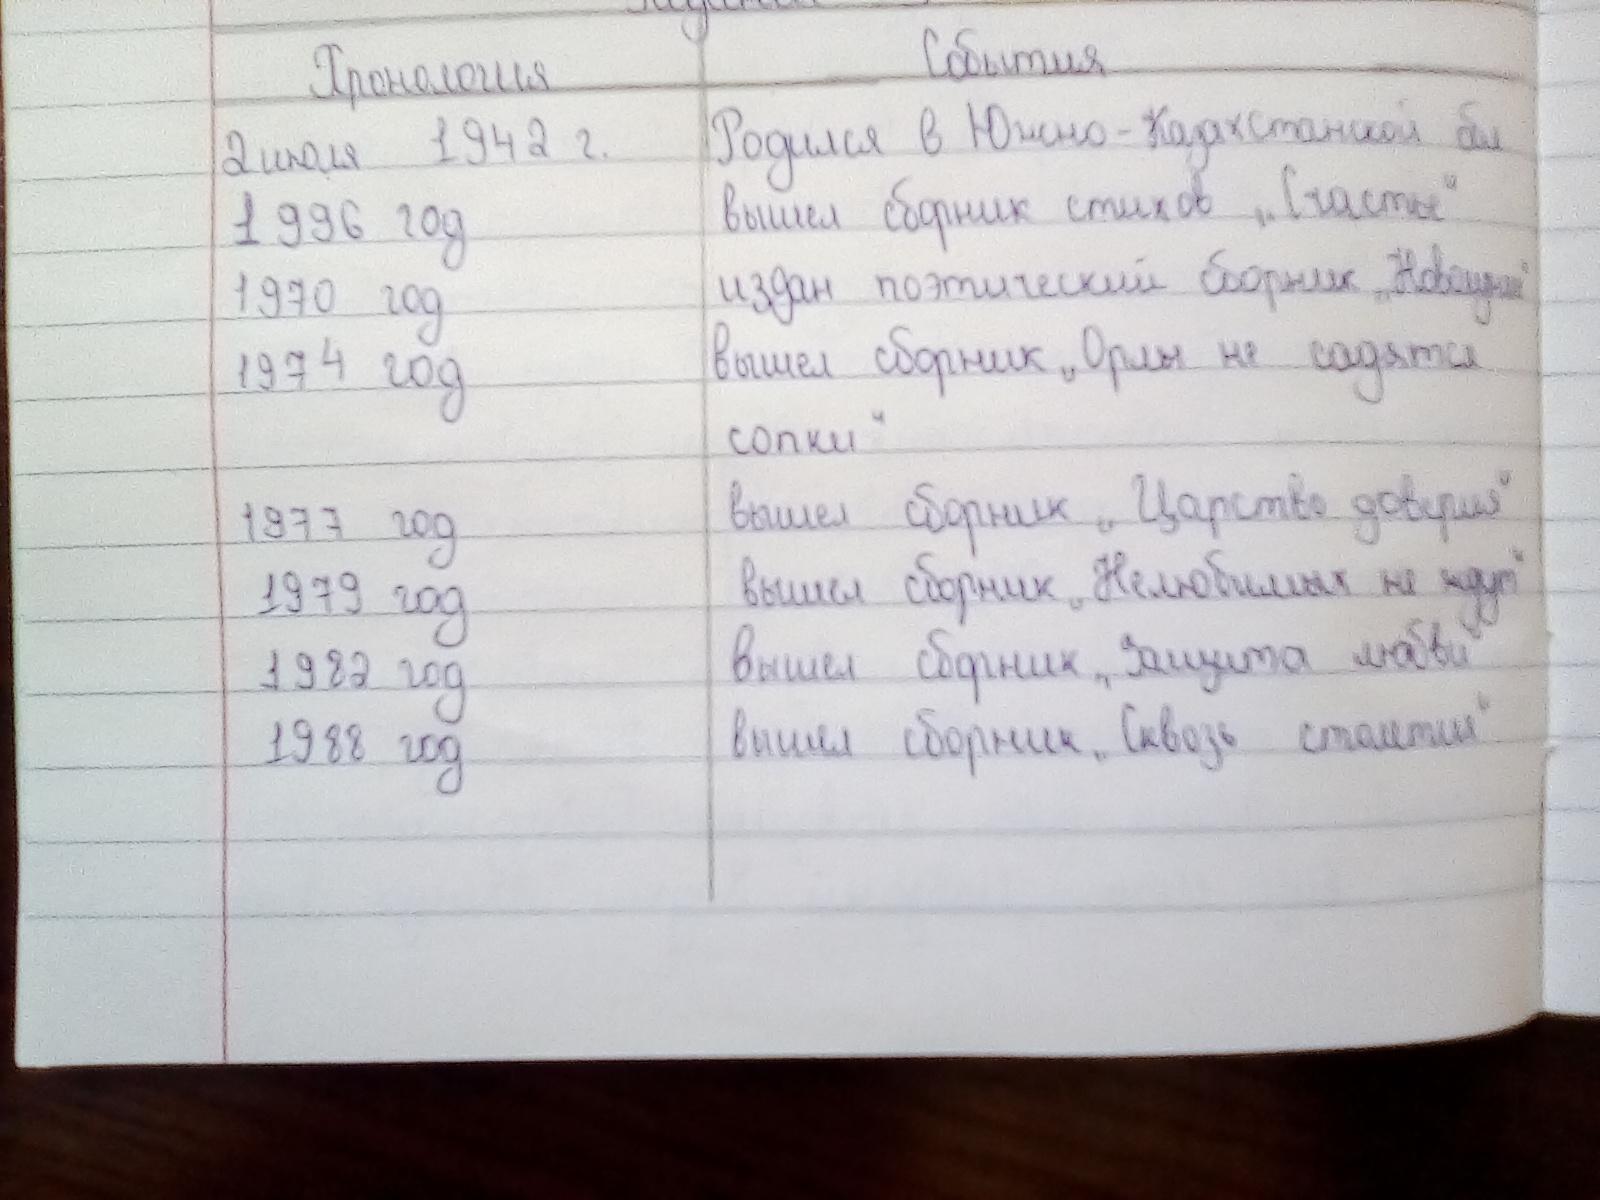 Хронология События
2 июля 1942 г. Родился в Южно-Казахстанской
1996 год вышел сборник стихов „Счастье"
1970 год издан поэтический сборник
1974 год вышел сборник „Орлы не садятся
сопки"
1977 год вышел сборник „Царство доверия"
1979 год вышел сборник „Нелюбимых не ждут"
1982 год вышел сборник „Защита любви"
1988 год вышел сборник „Сквозь столетия"